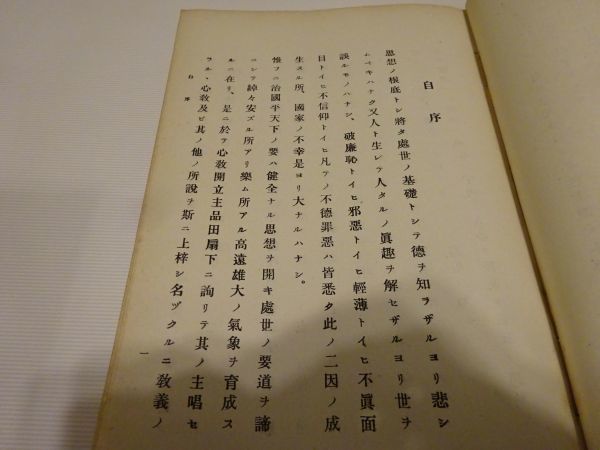 自序
思想ノ根底トシ將タ處世ノ基礎トシテ德ヲ知ラザルヨリ悲シ
ムベキハナク又人ト生レテ人タルノ眞趣ヲ解セザルヨリ世ヲ
誤ルモノハナシ、破廉恥トイヒ邪惡トイヒ輕薄トイヒ不眞面
目トイヒ不信仰トイヒ凡テノ不德罪惡ハ皆悉ク此ノ二因ノ成
生スル所、國家ノ不幸是ヨリ大ナルハナシ。
惟フニ治國平天下ノ要ハ健全ナル思想ヲ開キ處世ノ要道ヲ諦
ニシテ綽々安ズル所アリ樂ム所アル高遠雄大ノ氣象ヲ育成ス
ルニ在リ、是ニ於テ心敎開立主品田扇下ニ詢リテ其ノ主唱セ
ラル、心敎及ビ其ノ他ノ所說ヲ斯ニ上梓シ名ヅクルニ敎義ノ
自序
一